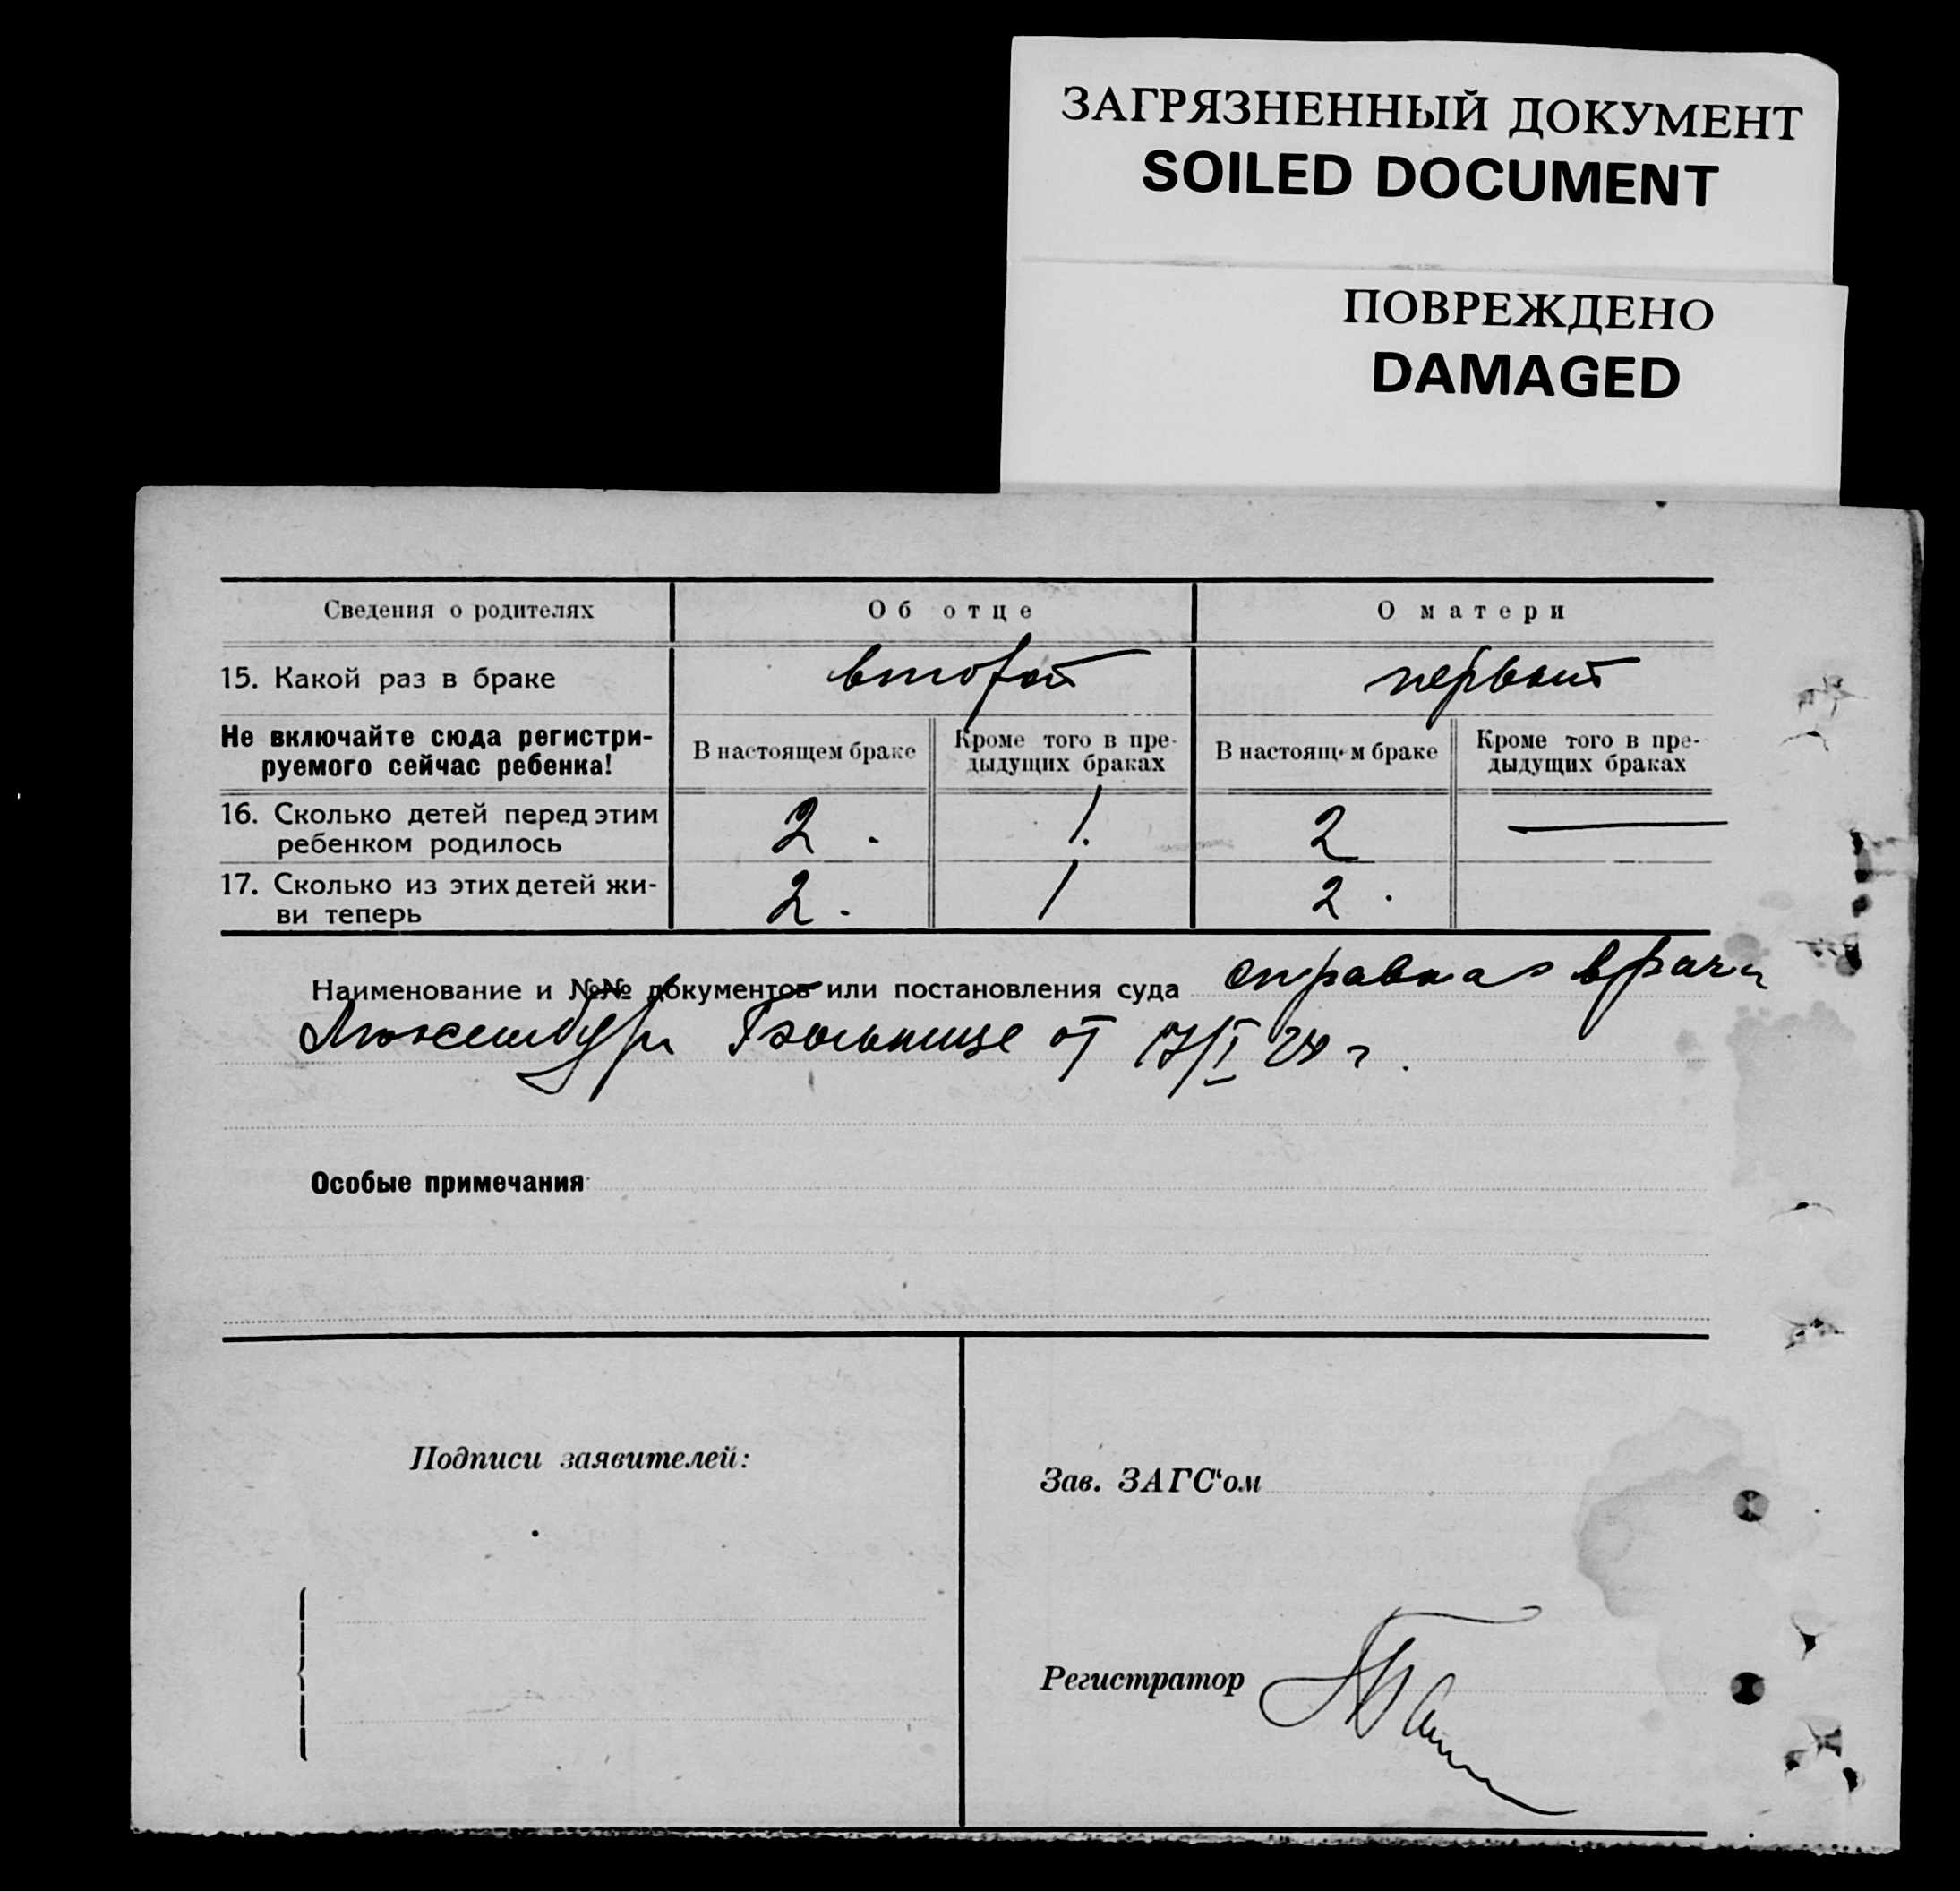 ЗАГРЯЗНЕННЫЙ ДОКУМЕНТ
SOILED DOCUMENT
ПОВРЕЖДЕНО
DAMAGED
Сведения о родителях Об отце О матери
15. Какой раз в браке второй первый
Не включайте сюда регистри-
руемого сейчас ребенка!
В настоящем браке
Кроме того в пре-
дыдущих браках
В настоящем браке
Кроме того в пре-
дыдущих браках
16. Сколько детей перед этим
ребенком родилось
2 . 1. 2 —
17. Сколько из этих детей жи-
ви теперь
2 . 1 2 .
Наименование и №№ документов или постановления суда справка врача
от 17/I 24 г.
Особые примечания
Подписи заявителей:
Зав. ЗАГС'ом
Регистратор